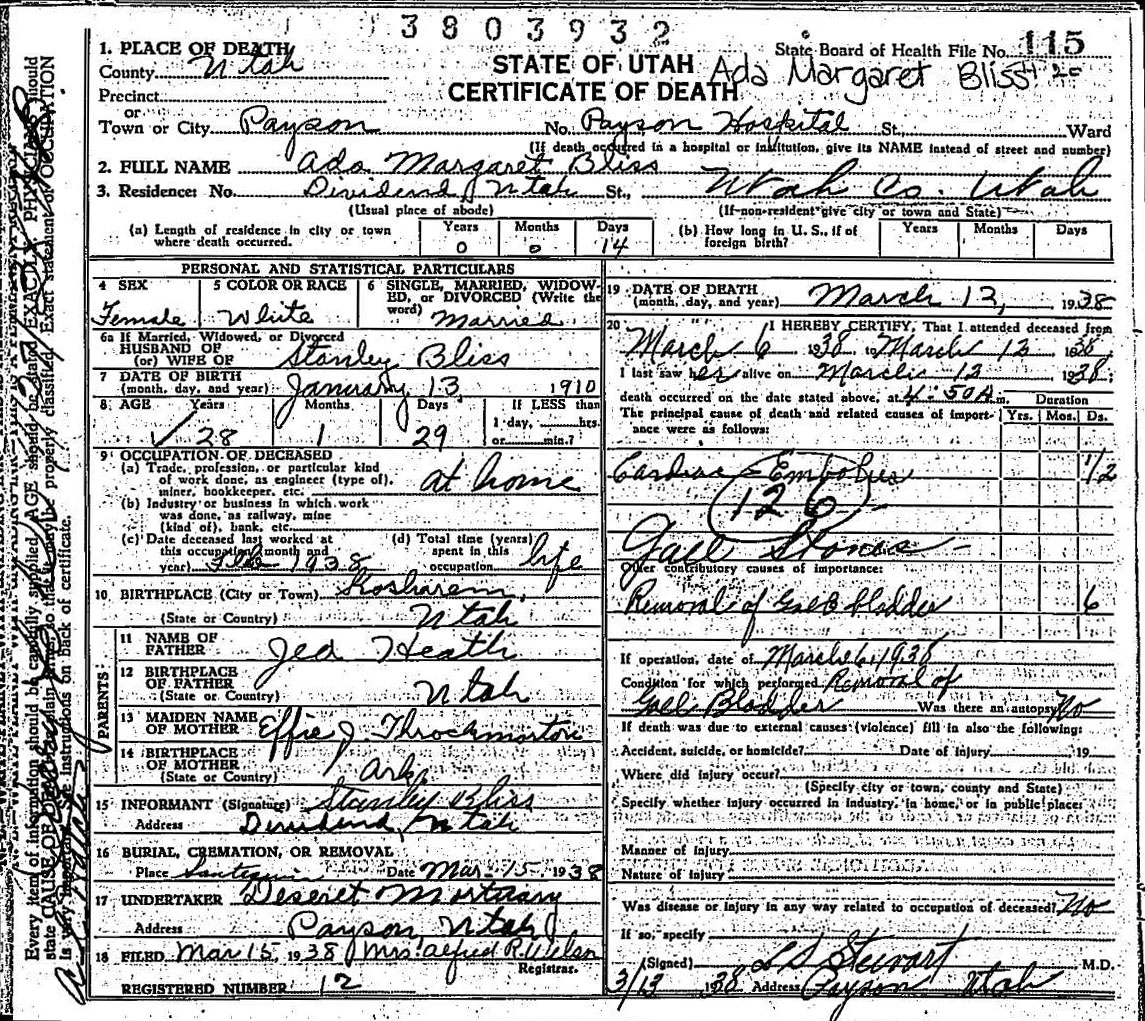 3803932
1. PLACE OF DEATH
County Utah
Precinct
or
Town or City Payson No. Payson Hospital St., Ward
(If death occurred in a hospital or institution, give its NAME instead of street and number)
STATE OF UTAH
CERTIFICATE OF DEATH
State Board of Health File No. 115
Ada Margaret Bliss
2. FULL NAME Ada Margaret Bliss
3. Residence: No. Dividend, Utah St., Utah Co. Utah
(Usual place of abode) (If non-resident give city or town and State)
(a) Length of residence in city or town where death occurred. Years 0 Months 0 Days 14
(b) How long in U. S., if of foreign birth? Years Months Days
PERSONAL AND STATISTICAL PARTICULARS
4 SEX Female
5 COLOR OR RACE White
6 SINGLE, MARRIED, WIDOWED, or DIVORCED (Write the word) Married
6a If Married, Widowed, or Divorced
HUSBAND OF
(or) WIFE OF Stanley Bliss
7 DATE OF BIRTH
(month, day, and year) January 13 1910
8 AGE Years 28 Months 1 Days 29
If LESS than
1 day, hrs.
or min.?
9 OCCUPATION OF DECEASED
(a) Trade, profession, or particular kind
of work done, as engineer (type of),
miner, bookkeeper, etc. at home
(b) Industry or business in which work
was done, as railway, mine
(kind of), bank, etc.
(c) Date deceased last worked at
this occupation (month and
year) Feb 1938
(d) Total time (years)
spent in this
occupation life
10 BIRTHPLACE (City or Town) Kosharem,
(State or Country) Utah
PARENTS
11 NAME OF
FATHER Jed Heath
12 BIRTHPLACE
OF FATHER
(State or Country) Utah
13 MAIDEN NAME
OF MOTHER Effie J Throckmorton
14 BIRTHPLACE
OF MOTHER
(State or Country) Ark.
15 INFORMANT (Signature) Stanley Bliss
Address Dividend, Utah
16 BURIAL, CREMATION, OR REMOVAL
Place Santaquin Date Mar. 15 1938
17 UNDERTAKER Deseret Mortuary
Address Payson, Utah
18 FILED Mar 15, 1938 Mrs. Alfred R. Wilson
Registrar.
REGISTERED NUMBER 12
19 DATE OF DEATH
(month, day, and year) March 12, 1938
20 I HEREBY CERTIFY, That I attended deceased from
March 6 1938 to March 12 1938,
I last saw her alive on March 12 1938;
death occurred on the date stated above, at 4:50 A.m. Duration
The principal cause of death and related causes of importance were as follows: Yrs. Mos. Ds.
Cardiac Embolus 1/2
126
Gall Stones
Other contributory causes of importance:
Removal of Gall bladder 6
If operation, date of March 6, 1938
Condition for which performed Removal of
Gall Bladder Was there an autopsy No
If death was due to external causes (violence) fill in also the following:
Accident, suicide, or homicide? Date of Injury 19
Where did injury occur?
(Specify city or town, county and State)
Specify whether injury occurred in industry, in home, or in public place:
Manner of Injury
Nature of Injury
Was disease or injury in any way related to occupation of deceased? No
If so, specify
(Signed) L D Stewart M.D.
3/13 1938 Address Payson Utah
Every item of information should be carefully supplied. AGE should be stated EXACTLY. PHYSICIANS should
state CAUSE OF DEATH in plain terms, so that it may be properly classified. Exact statement of OCCUPATION
is very important. See instructions on back of certificate.